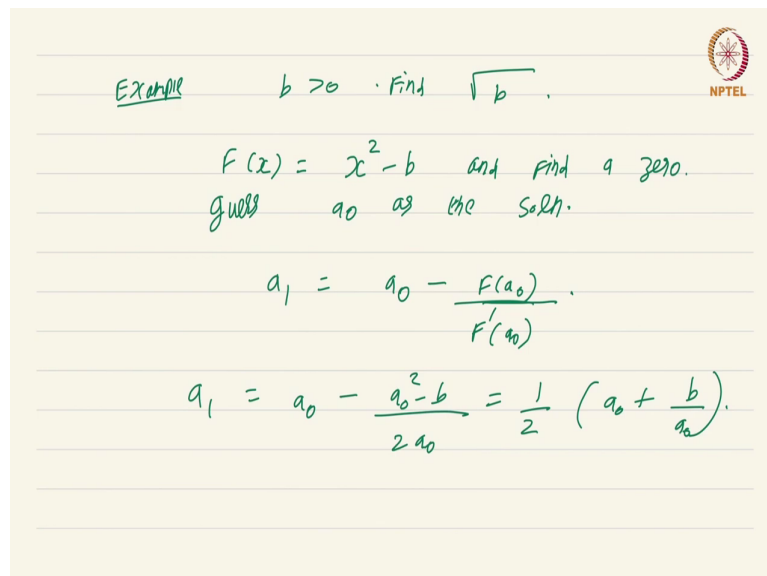 Example b > 0 . Find √b .
NPTEL
F(x) = x² - b and find a zero.
guess a₀ as the soln.
a₁ = a₀ - F(a₀)/F'(a₀) .
a₁ = a₀ - (a₀² - b)/(2a₀) = 1/2 (a₀ + b/a₀).